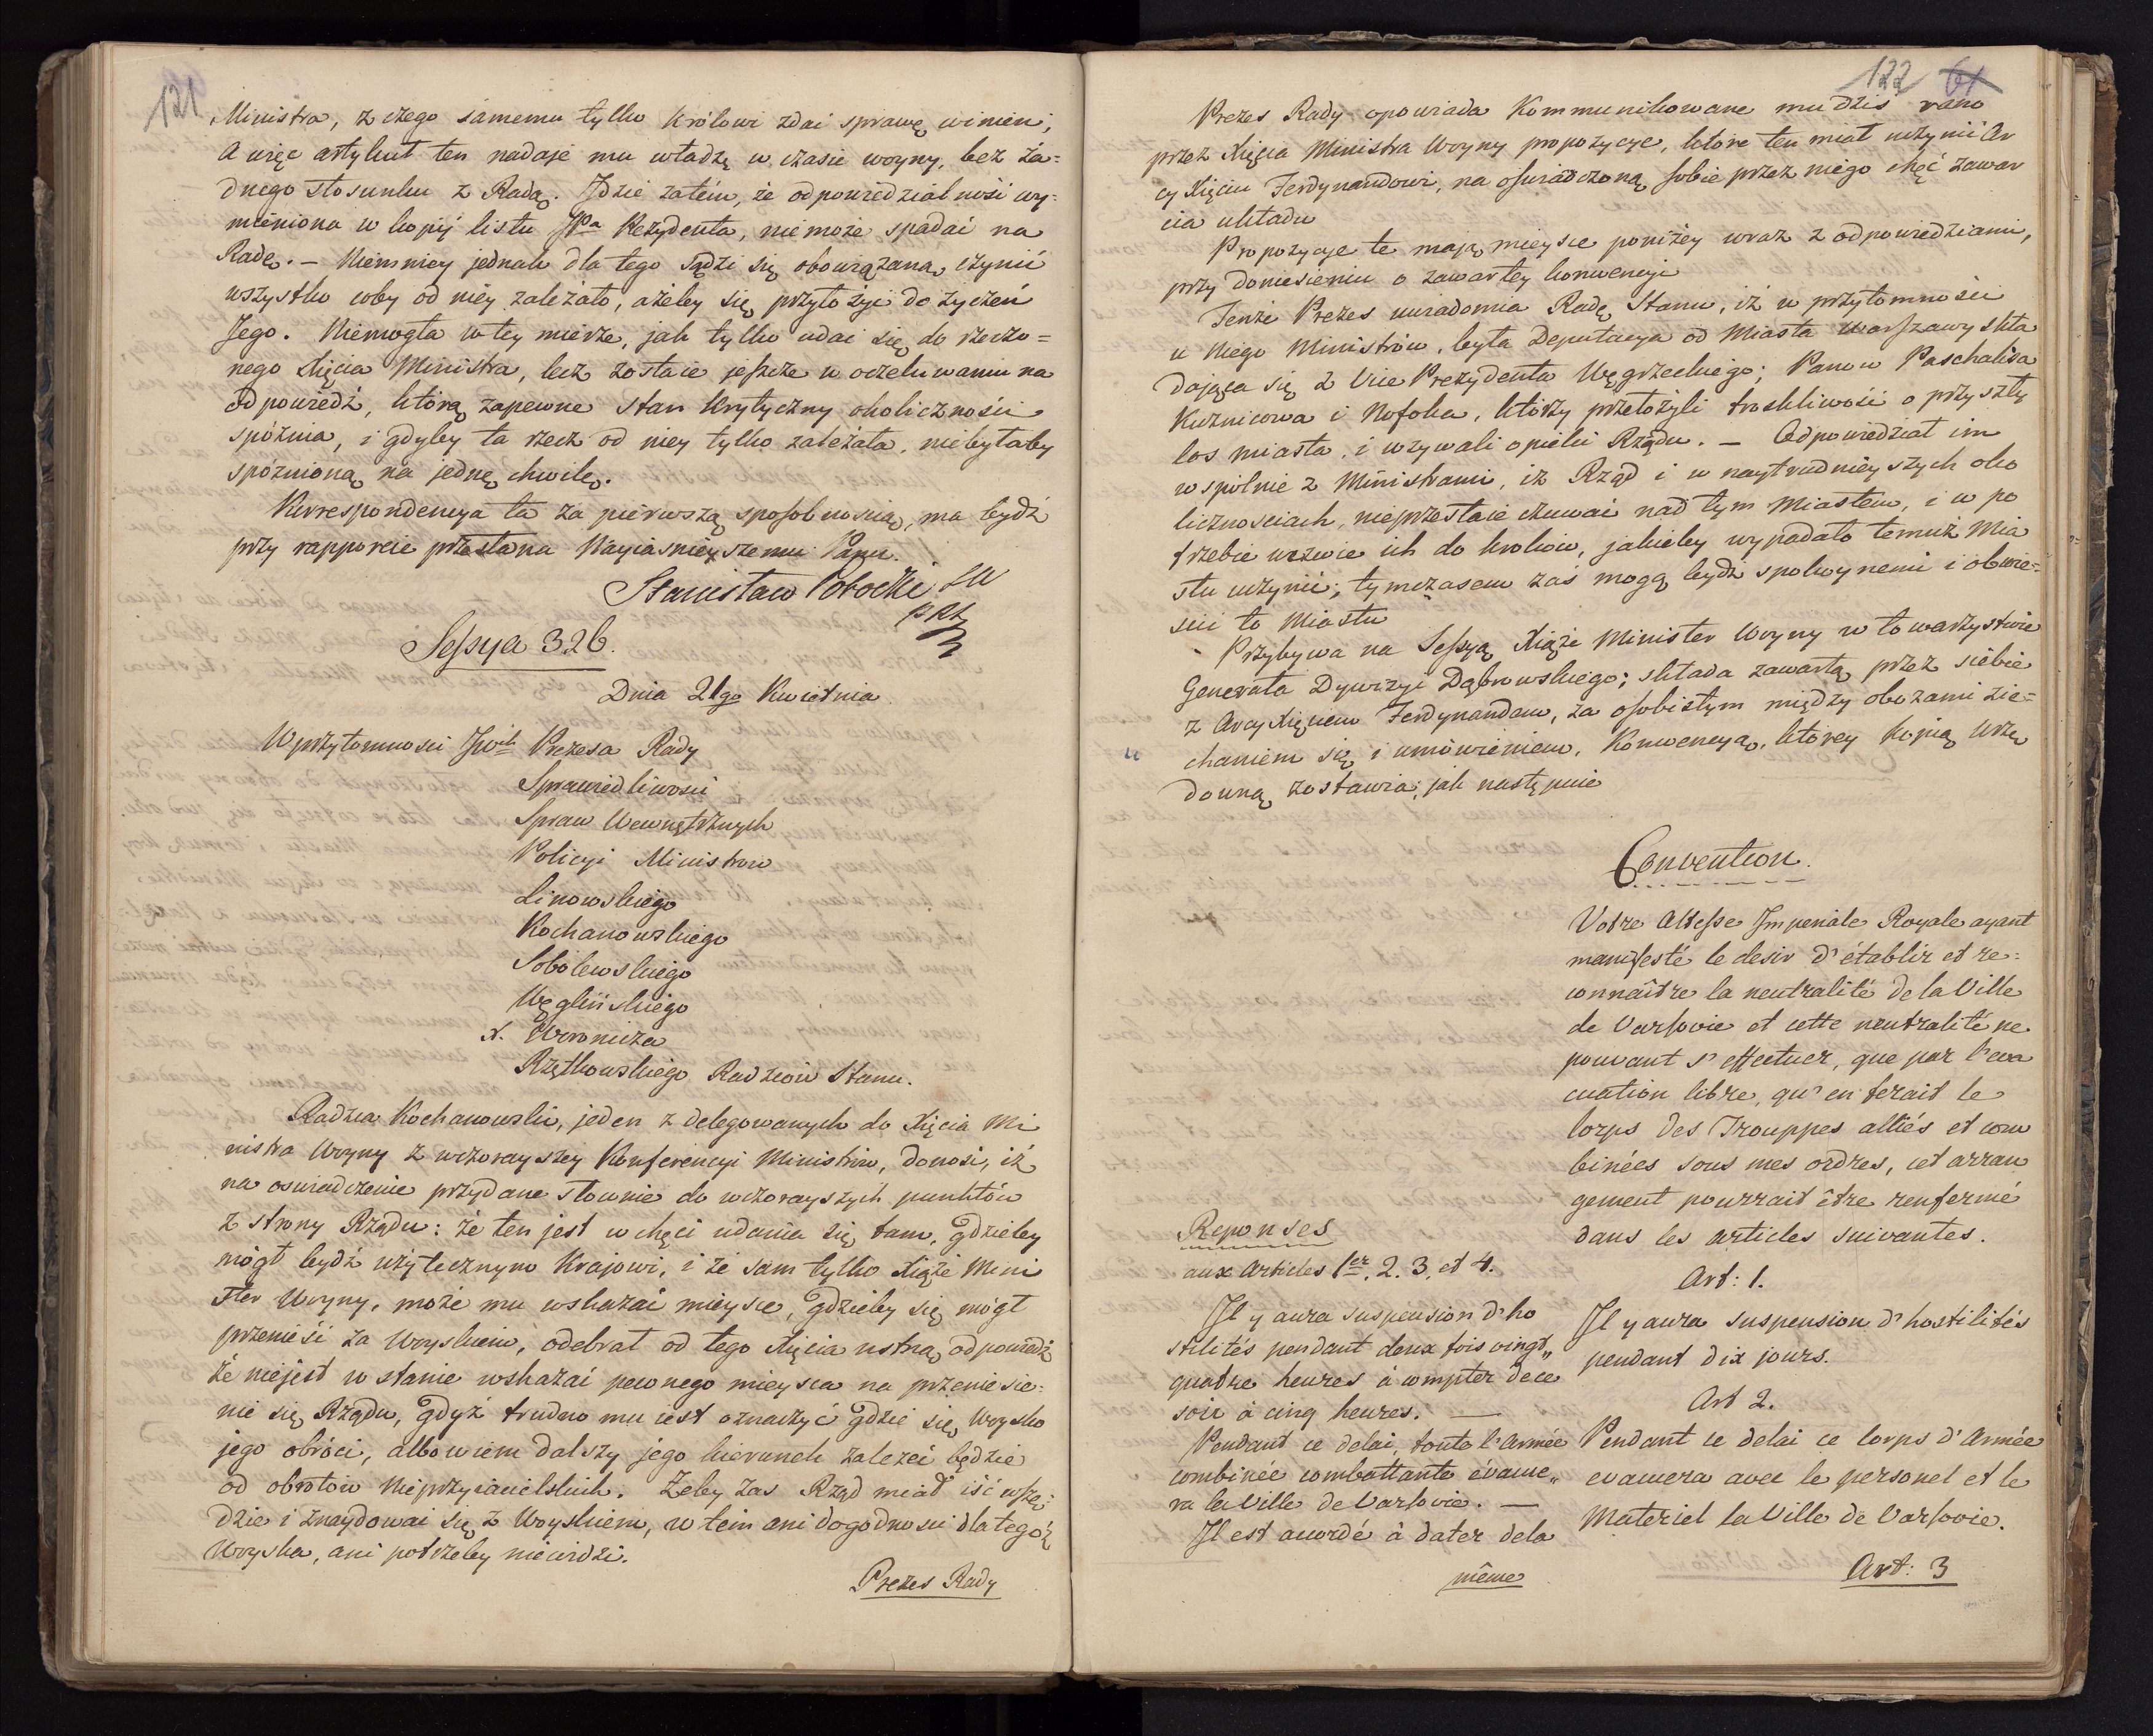 121
Ministra, z czego samemu tylko Królowi zdać sprawę winien;
A więc artykuł ten nadaje mu władzę w czasie woyny, bez ża=
dnego stosunku z Radą. Jdzie zatém, że odpowiedzialność wy=
mieniona w kopij listu JPa Rezydenta, nie może spadać na
Radę. – Niemniey jednak dla tego sądzi się obowiązaną czynić
wszystko coby od niéy zależało, ażeby się przyłożyć do życzeń
Jego. Niemogła w tey mierze, jak tylko udać się do rzeczo=
nego Xięcia Ministra, lecz zostaie jeszcze w oczekiwaniu na
odpowiedź, którą zapewne stan krytyczny okoliczności
spóźnia, i gdyby ta rzecz od niey tylko zależała, nie byłaby
spóźnioną na jednę chwilę.
Korrespondencya ta za pierwszą sposobnością, ma bydź
przy rapporcie przesłana Nayiaśnieyszemu Panu.
Stanisław Potocki
Sessya 326.
Dnia 21go Kwietnia
W przytomności JWch Prezesa Rady
Sprawiedliwości
Spraw Wewnętrznych
Policyi Ministrów
Linowskiego
Kochanowskiego
Sobolewskiego
Węglińskiego
X. Woronicza
Rzętkowskiego Radzców Stanu.
Radzca Kochanowski, jeden z delegowanych do Xięcia Mi
nistra Woyny z wczorayszey Konferencyi Ministrów, donosi, iż
na oświadczenie przydane słownie do wczorayszych punktów
z strony Rządu: że ten jest w chęci udania się tam, gdzieby
mógł bydź użytecznym Krajowi, i że sam tylko Xiąże Mini
ster Woyny, może mu wskazać mieysce, gdzieby się mógł
przenieść za Woyskiem, odebrał od tego Xięcia ustną odpowiedź
że niejest w stanie wskazać pewnego mieysca na przeniesie=
nie się Rządu, gdyż trudno mu iest oznaczyć gdzie się Woysko
jego obróci, albowiem dalszy jego kierunek zależeć będzie
od obrotów Nieprzyiacielskich. Żeby zas Rząd miał iść wszę=
dzie i znaydować się z Woyskiem, w tém ani dogodności dla tegóż
Woyska, ani potrzeby niewidzi.
Prezes Rady
122 61
Prezes Rady opowiada Kommunikowane mu dziś rano
przez Xięcia Ministra Woyny propozycye, które ten miał uczynić Ar
cy Xięciu Ferdynandowi, na oświadczoną sobie przez niego chęć zawar
cia układu
Propozycye te mają mieysce poniżey wraz z odpowiedziami,
przy doniesieniu o zawartey konwencyi
Tenże Prezes uwiadomia Radę Stanu, iż w przytomności
u Niego Ministrów, była Deputacya od Miasta Warszawy skła
dająca się z Vice Prezydenta Węgrzeckiego; Panów Paschalisa
Kuznicowa i Nofoka, którzy przełożyli troskliwość o przyszły
los miasta, i wzywali opieki Rządu. – Odpowiedział im
wspólnie z Ministrami, iż Rząd i w naytrudnieyszych oko
licznościach, nieprzestaie czuwać nad tym Miastem, i w po
trzebie wezwie ich do kroków, jakieby wypadało temuż Mia
stu uczynić; tymczasem zaś mogą bydź spokoynemi i obwie=
ścić to Miastu
Przybywa na Sessyą Xiąże Minister Woyny w towarzystwie
Generała Dywizyi Dąbrowskiego; składa zawartą przez siebie
z Arcy Xięciem Ferdynandem, za osobistym między obozami zie=
chaniem się i umówieniem, Konwencyą, którey kopią Urzę
downą zostawia; jak następuie
Convention.
Votre Altesse Imperiale Royale ayant
manifesté le desir d'établir et re=
connaître la neutralité de la Ville
de Varsovie et cette neutralité ne
pouvant s'effectuer, que par l'eva
cuation libre, qu'en ferait le
Corps des Trouppes alliés et com
binées sous mes ordres, cet arran
gement pourrait être renfermé
dans les articles suivantes.
Art: 1.
Il y aura suspension d'hostilités
pendant dix jours.
Art 2.
Pendant ce delai ce Corps d'Armée
evacuera avec le personel et le
Materiel la Ville de Varsovie.
Art: 3
Reponses
aux Articles 1er. 2. 3. et 4.
Il y aura suspension d'ho
stilités pendant deux fois vingt„
quatre heures à compter de ce
soir à cinq heures. —
Pendant ce delai, toute l'Armée
combinée combattante évacue„
ra la Ville de Varsovie. —
Il est accordé à dater dela
même